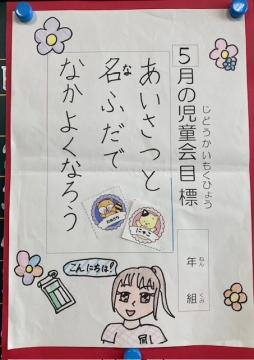 5月の児童会目標
じどうかいもくひょう
あいさつと
名ふだで
な
なかよくなろう
年組
ねん
くみ
こんにちは!